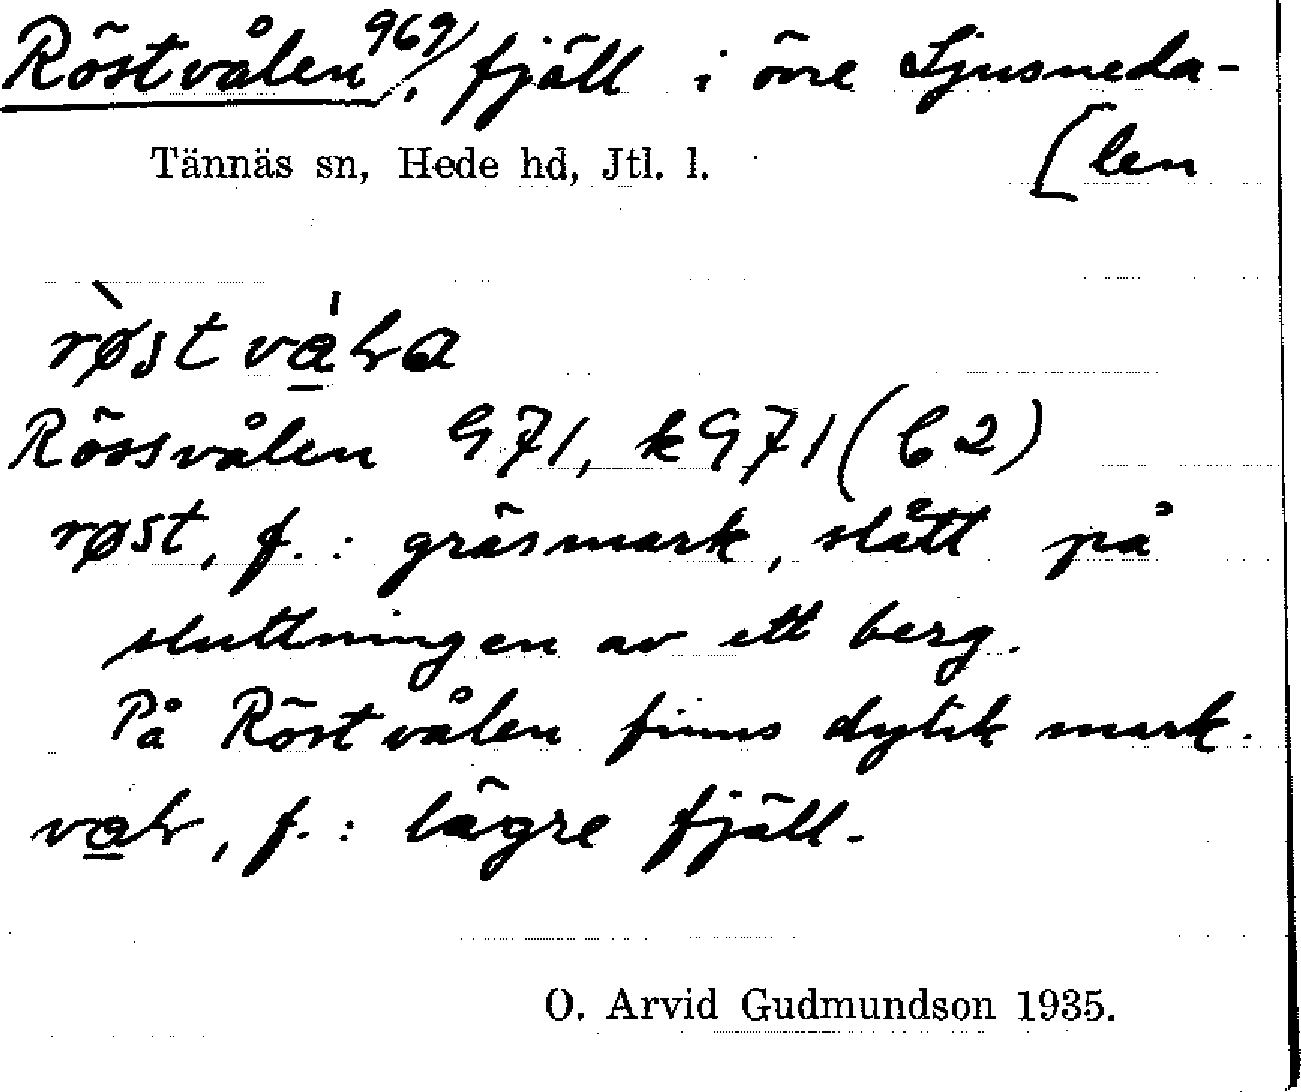 Röstvålen 969/, fjäll i övre Ljusneda-
[len
Tännäs sn, Hede hd, Jtl. l.
Rössvålen 971, k971 (C2)
røst, f. : gräsmark, slått på
sluttningen av ett berg.
På Röstvålen finns dylik mark.
f. : lägre fjäll.
O. Arvid Gudmundson 1935.